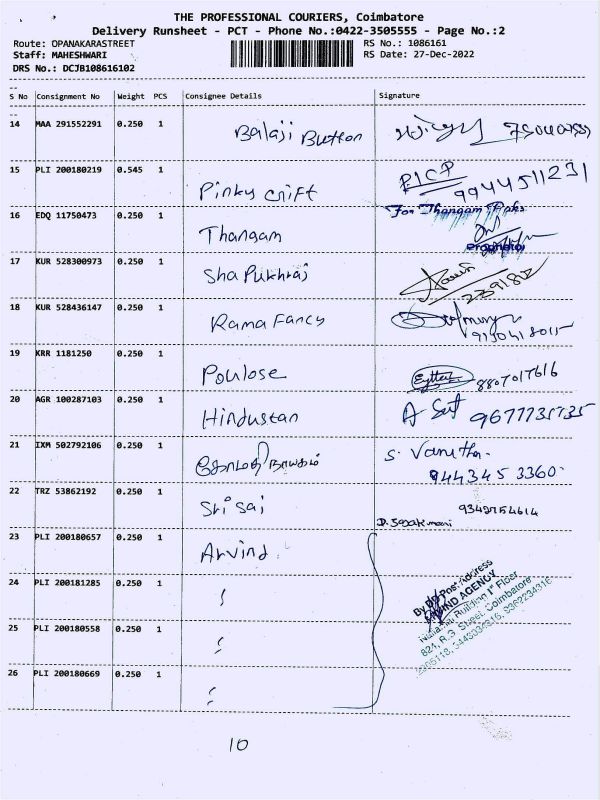 THE PROFESSIONAL COURIERS, Coimbatore
Delivery Runsheet - PCT - Phone No.:0422-3505555 - Page No.:2
Route: OPANAKARASTREET RS No.: 1086161
Staff: MAHESHWARI RS Date: 27-Dec-2022
DRS No.: DCJB108616102
S No Consignment No Weight PCS Consignee Details Signature
14 MAA 291552291 0.250 1 Balaji Button
15 PLI 200180219 0.545 1 Pinky Crift PICP 9944511231
16 EDQ 11750473 0.250 1 Thangam For Thangam
Proprietor
17 KUR 528300973 0.250 1 Sha Pukhraj
18 KUR 528436147 0.250 1 Rama Fancy
19 KRR 1181250 0.250 1 Poulose 8807017616
20 AGR 100287103 0.250 1 Hindustan 9677735735
21 IXM 502792106 0.250 1 கோமதி நாயகம் S. Vanitha
9443453360
22 TRZ 53862192 0.250 1 Sri Sai 9342754614
23 PLI 200180657 0.250 1 Arvind
24 PLI 200181285 0.250 1 "
25 PLI 200180558 0.250 1 "
26 PLI 200180669 0.250 1 "
Post Address
ARVIND AGENCY
Building 1st Floor
821, R.3. Street, Coimbatore
10